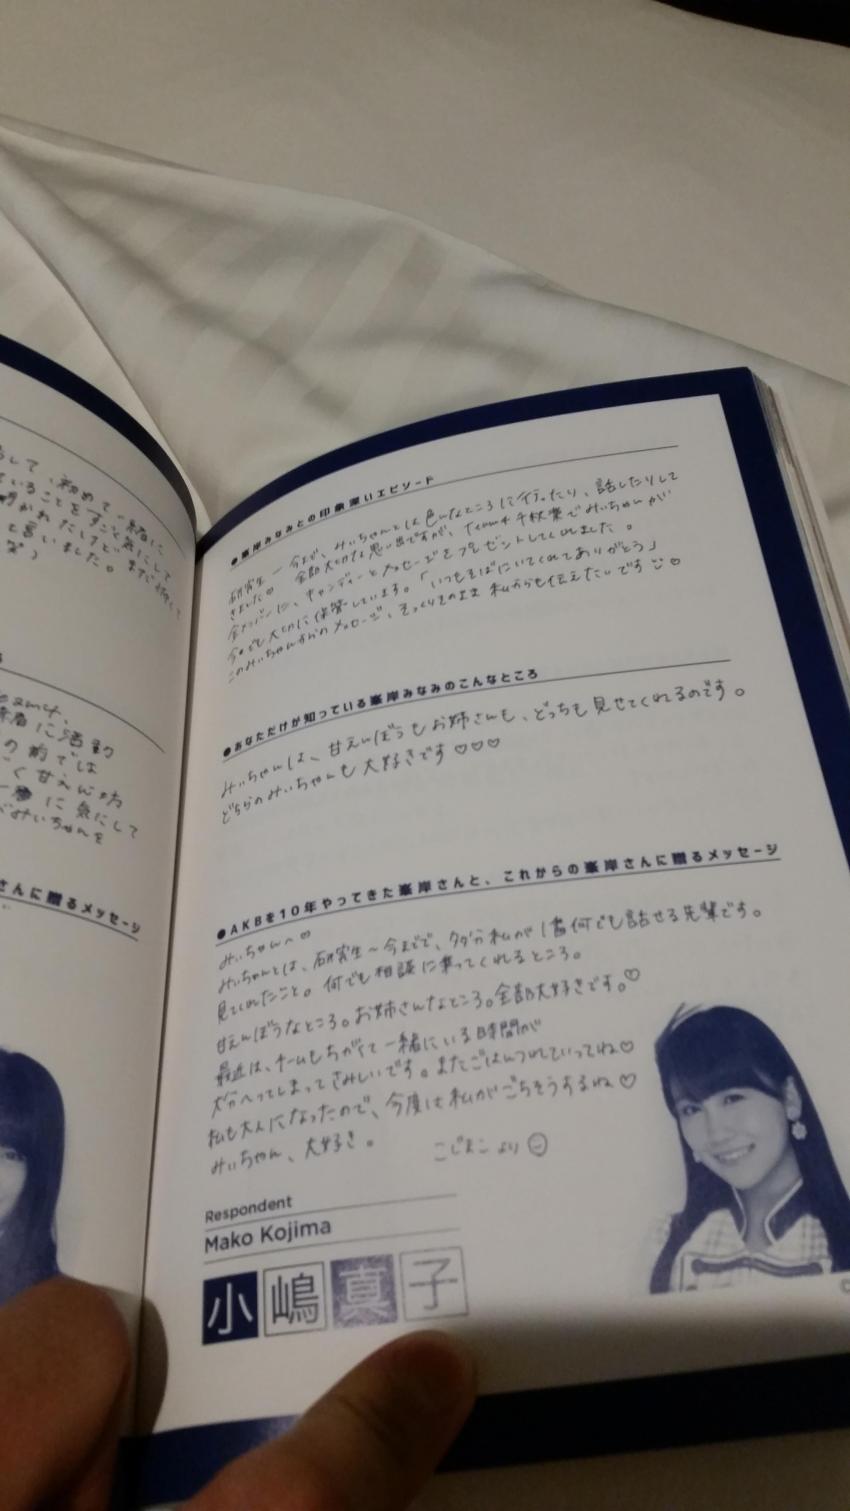 して、初めて一緒に
いることをすごく気にして
と言いました。
に活動
の前では
く甘えん坊
に気にして
みぃちゃんを
さんに贈るメッセージ
●峯岸みなみとの印象深いエピソード
研究生〜今まで、みぃちゃんとは色んなところに行ったり、話したりして
きました♡ 全部大切な思い出ですが、Team4 千秋楽でみぃちゃんが
全メンバーに、キャンディーとメッセージをプレゼントしてくれました。
今でも大切に保管しています。「いつもそばにいてくれてありがとう」
このみぃちゃんからのメッセージ、そっくりそのまま私からも伝えたいです♡
●あなただけが知っている峯岸みなみのこんなところ
みぃちゃんは、甘えんぼうもお姉さんも、どっちも見せてくれるのです。
どちらのみぃちゃんも大好きです♡♡♡
●AKBを10年やってきた峯岸さんと、これからの峯岸さんに贈るメッセージ
みぃちゃんへ♡
みぃちゃんとは、研究生〜今までで、多分私が1番何でも話せる先輩です。
見てくれたこと。何でも相談に乗ってくれるところ。
甘えんぼうなところ。お姉さんなところ。全部大好きです。♡
最近は、チームもちがくて一緒にいる時間が
大分へってしまってさみしいです。またごはんつれていってね♡
私も大人になったので、今度は私がごちそうするね♡
みぃちゃん、大好き。 こじまこより
Respondent
Mako Kojima
小嶋真子